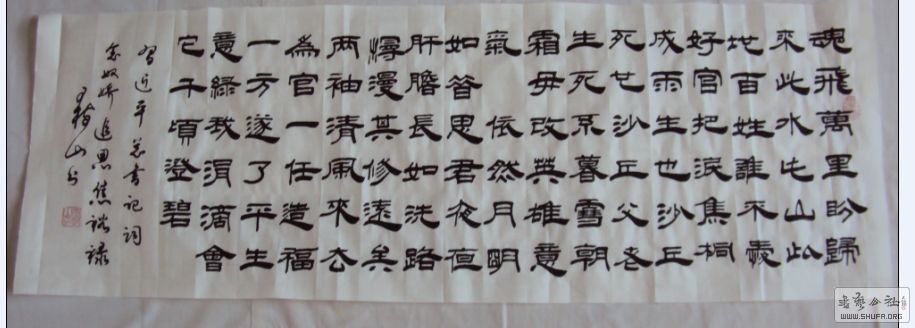 魂飛萬里盼歸
來此水此山此
地百姓誰不愛
好官把淚焦桐
成雨生也沙丘
死也沙丘父老
生死系暮雪朝
霜毋改英雄意
氣 依然月明
如昔思君夜夜
肝膽長如洗路
漫漫其修遠矣
两袖清風來去
為官一任造福
一方遂了平生
意綠我涓滴會
它千頃澄碧
習近平总書記詞
念奴嬌追思焦裕禄
山书
书艺公社
WWW.SHUFA.ORG